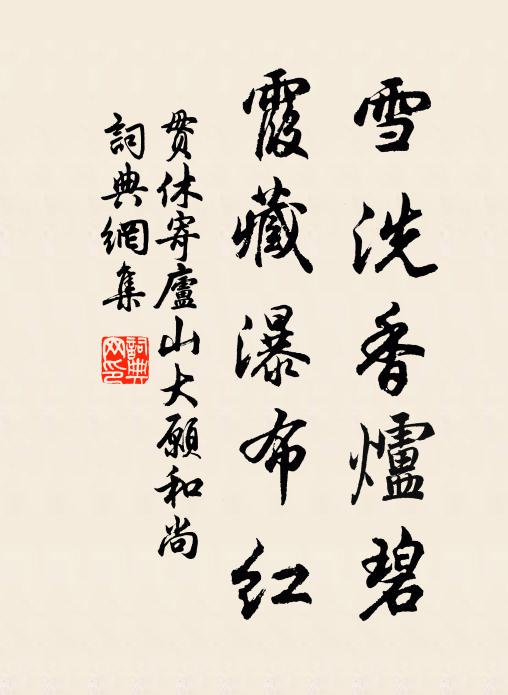 雪洗香爐碧
霞藏瀑布紅
贯休寄廬山大願和尚
詞典網集
詞典
网印